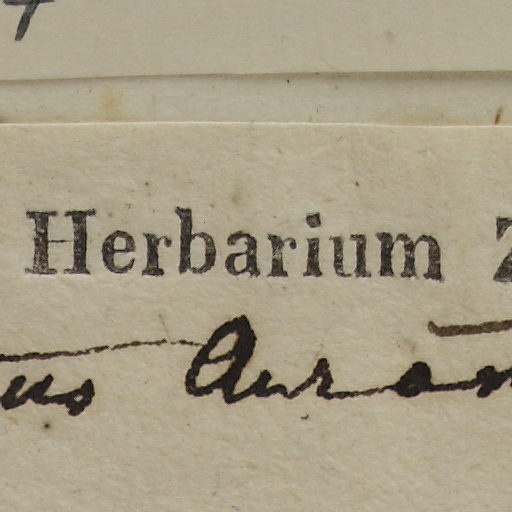 Herbarium Z
us Auran